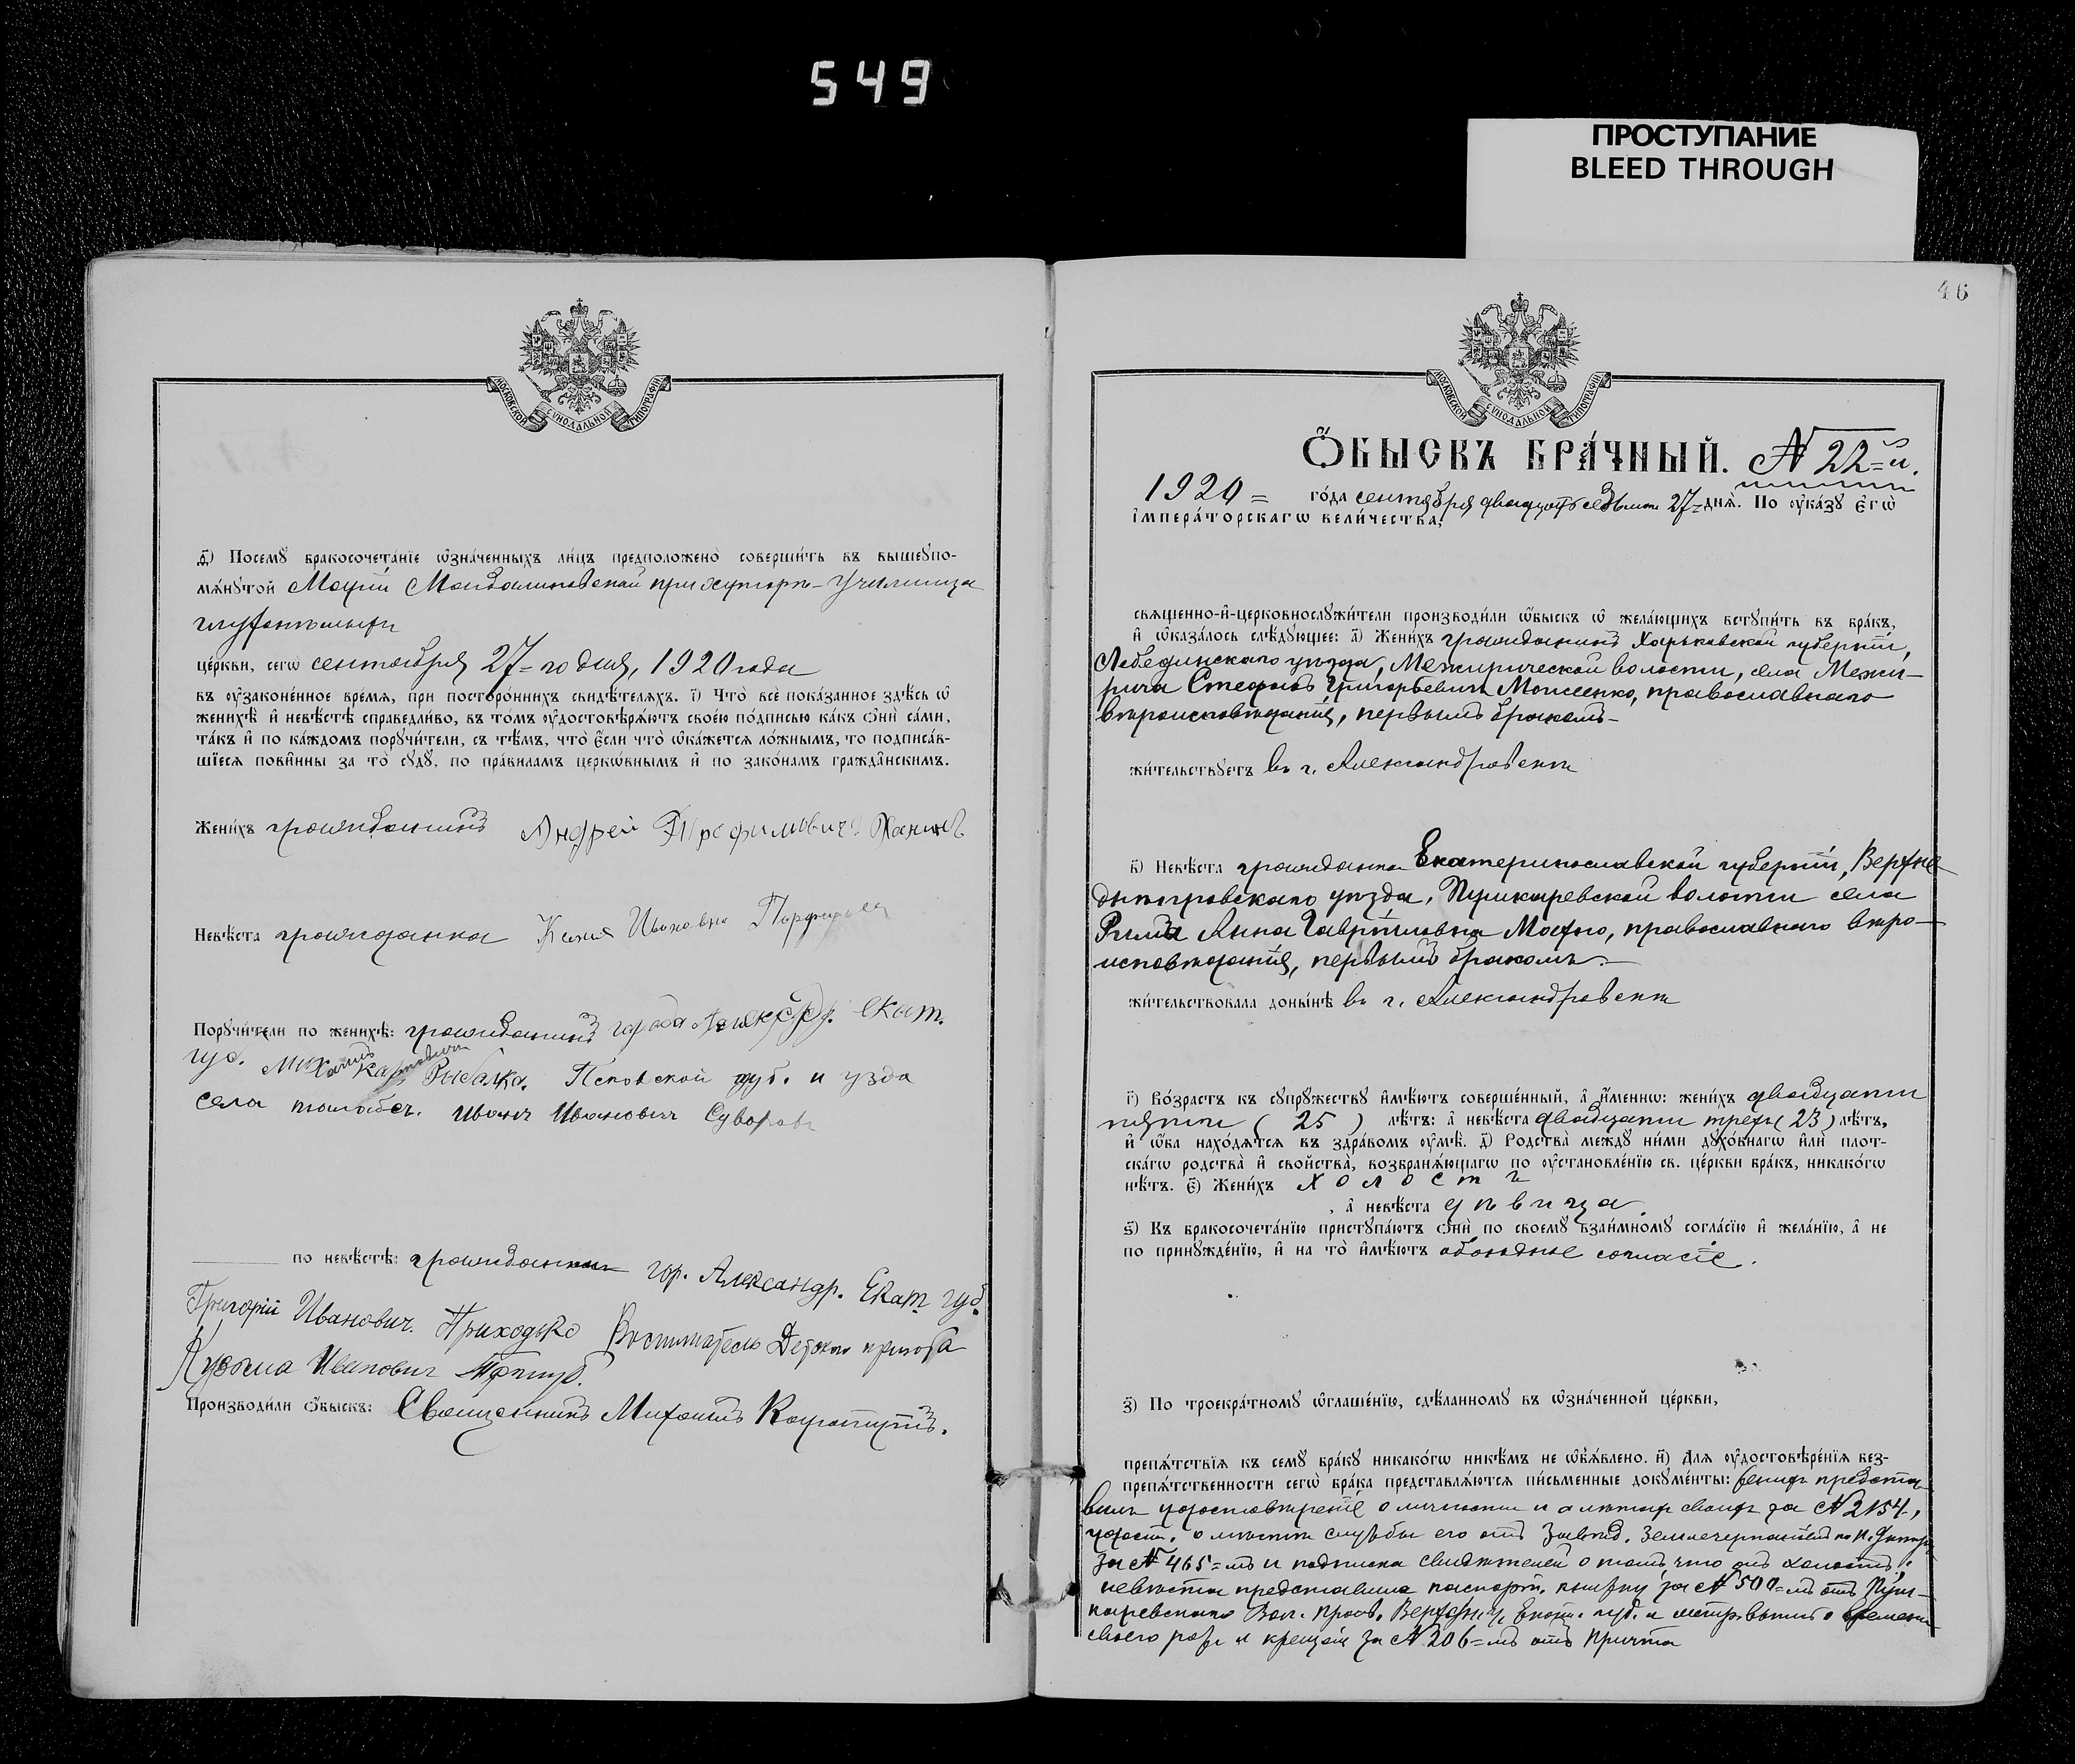 549
ПРОСТУПАНИЕ
BLEED THROUGH
МОСКОВСКОЙ СѴНОДАЛЬНОЙ ТИПОГРАФІИ
д҃і) Посемꙋ бракосочета́нїе ѡ҆зна́ченныхъ ли́цъ предположено̀ соверши́ть въ вышеꙋпо-
мѧ́нꙋтой Марiи Магдалиновской при хуторѣ-училища
глухонѣмыхъ
це́ркви, сегѡ̀ сентября 27=го дня, 1920 года
въ ᲂу҆законе́нное вре́мѧ, при посторо́ннихъ свидѣ́телѧхъ. і҃) Что̀ всѐ пока́занное здѣ́сь ѡ҆
женихѣ̀ и҆ невѣ́стѣ справедли́во, въ то́мъ ᲂу҆достовѣрѧ́ютъ свое́ю по́дписью ка́къ ѻ҆нѝ са́ми,
та́къ и҆ по ка́ждомъ порꙋчи́тели, съ тѣ́мъ, что̀ є҆́сли что̀ ѡ҆ка́жетсѧ ло́жнымъ, то подписа́в-
шїесѧ пови́нны за то̀ сꙋдꙋ̀, по пра́виламъ церкѡ́внымъ и҆ по зако́намъ гражда́нскимъ.
Жени́хъ гражданинъ Андрей Трофимовичъ Ханинъ
Невѣ́ста гражданка Ксения Ивановна
Порꙋчи́тели по женихѣ̀: гражданинъ города Екат.
губ. Михаилъ Карповичъ Рыбалка. Псковской губ. и узда
села Иванъ Ивановичъ Суворовъ
по невѣ́стѣ: гор. Александр. Екат. губ.
Григорiй Иванович. Приходько Воспитатель Детскаго приюта
Кузьма Иванович
Производи́ли ѻ҆́быскъ: Священникъ Михаилъ
46
МОСКОВСКОЙ СѴНОДАЛЬНОЙ ТИПОГРАФІИ
Ѻ҆́БЫСКЪ БРА́ЧНЫЙ. N 22=й.
1920= го́да сентября двадцать седьмаго 27= днѧ̀. По ᲂу҆ка́зꙋ Є҆гѡ̀
І҆мпера́торскагѡ вели́чества,
свѧще́нно-и҆-церковнослꙋжи́тели производи́ли ѡ҆́быскъ ѡ҆ жела́ющихъ встꙋпи́ть въ бра́къ,
и҆ ѡ҆каза́лось слѣ́дꙋющее: а҃) Жени́хъ гражданинъ Харьковской губернiи,
Лебединскаго уѣзда, Межирической волости, села Межи-
рича Стефанъ Григорьевичъ Моисеенко, православнаго
вѣроисповѣданiя, первымъ бракомъ-
жи́тельствꙋетъ въ г. Александровскѣ
в҃) Невѣ́ста гражданка Екатеринославской губернiи, Верхне
днѣпровскаго уѣзда, Пушкаревской волости села
Анна Гаврiиловна Махно, православнаго вѣро-
исповѣданiя, первымъ бракомъ.—
жи́тельствовала доны́нѣ въ г. Александровскѣ
г҃) Во́зрастъ къ сꙋпрꙋ́жествꙋ и҆мѣ́ютъ соверше́нный, а҆ и҆́меннѡ: жени́хъ двадцати
пяти (25) лѣ́тъ: а҆ невѣ́ста двадцати трехъ (23) лѣ́тъ,
и҆ ѻ҆́ба нахо́дѧтсѧ въ здра́вомъ ᲂу҆мѣ̀. д҃) Родства̀ междꙋ̀ ни́ми дꙋхо́внагѡ и҆лѝ плот-
ска́гѡ родства̀ и҆ свойства̀, возбранѧ́ющагѡ по ᲂу҆становле́нїю св. це́ркви бра́къ, никако́гѡ
нѣ́тъ. є҃) Жени́хъ холостъ
, а҆ невѣ́ста дѣвица
ѕ҃) Къ бракосочета́нїю пристꙋпа́ютъ ѻ҆нѝ по своемꙋ̀ взаи́мномꙋ согла́сїю и҆ жела́нїю, а҆ не
по принꙋжде́нїю, и҆ на то̀ и҆мѣ́ютъ обоюдное согласiе.
з҃) По троекра́тномꙋ ѡ҆глаше́нїю, сдѣ́ланномꙋ въ ѡ҆зна́ченной це́ркви,
препѧ́тствїѧ къ семꙋ̀ бра́кꙋ никако́гѡ никѣ́мъ не ѡ҆б̾ѧ́влено. и҃) Длѧ ᲂу҆достовѣре́нїѧ без-
препѧ́тственности сегѡ̀ бра́ка представлѧ́ютсѧ пи́сьменные докꙋме́нты: женихъ предста-
вилъ удостовѣренiе о личности и о лѣтахъ своихъ за N 2154,
удост. о мѣстѣ службы его отъ
за N 465=мъ и подписка свидѣтелей о томъ, что онъ холостъ;
невѣста представила паспорт. книжку за N 500=мъ отъ Пуш-
каревскаго Вол. Прав. Верхнедн. у. Екат. губ. и метр. выпись о времени
своего рожд. и крещенiя за N 206=мъ отъ причта